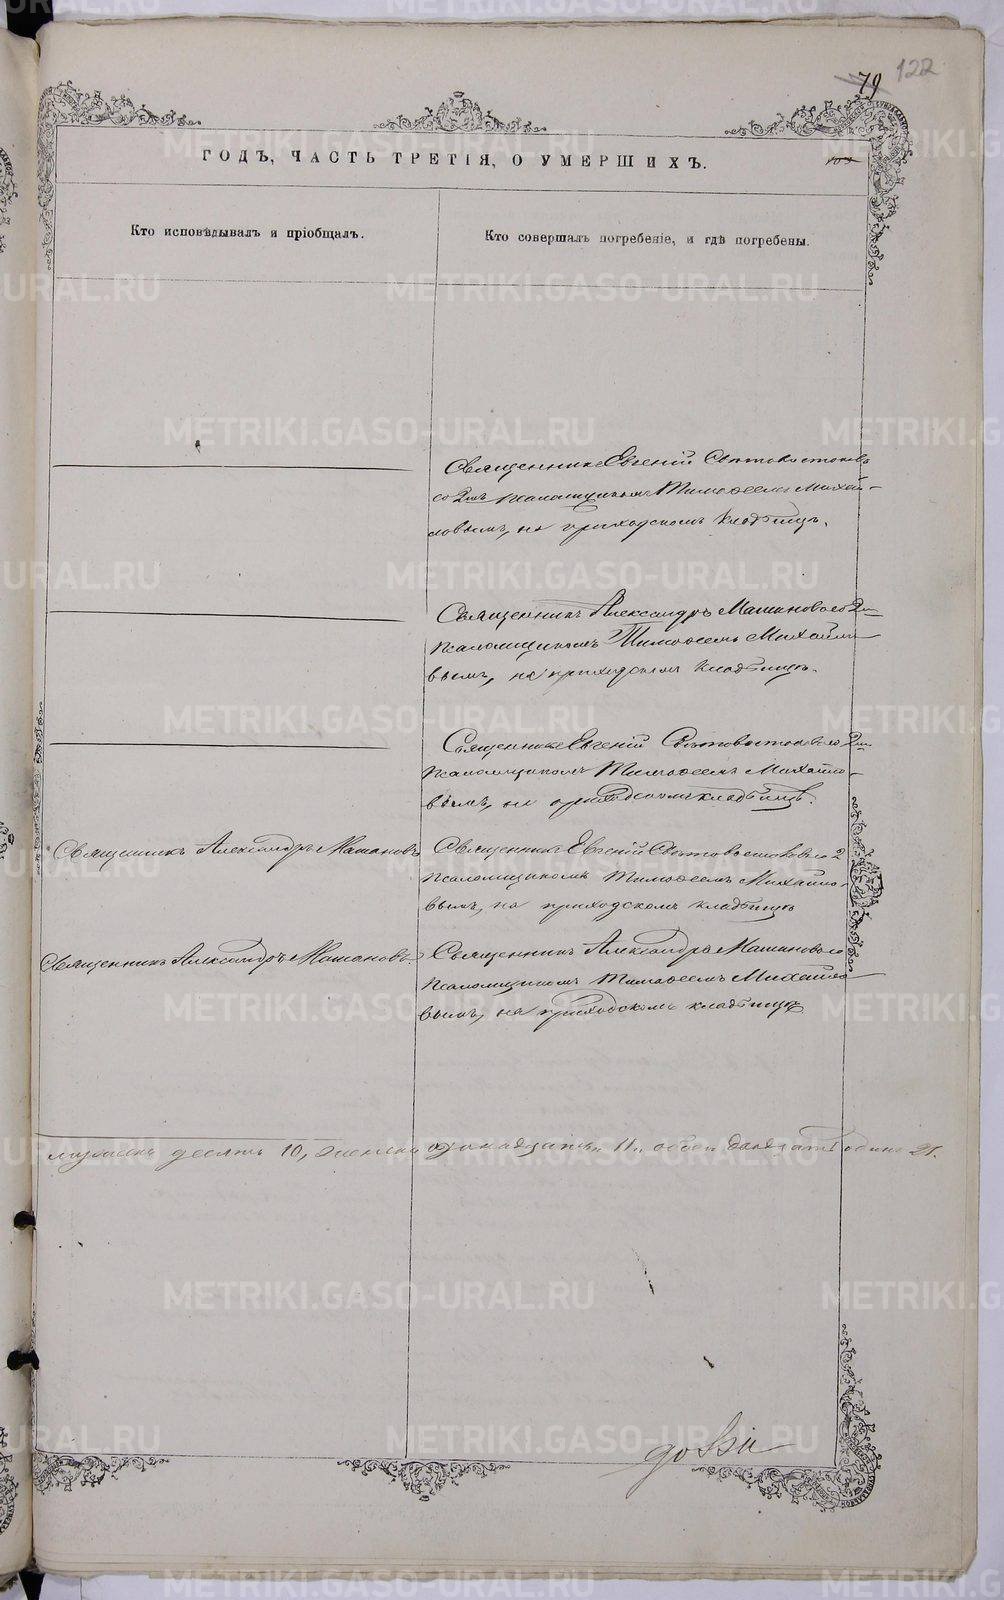 79 122
ГОДЪ, ЧАСТЬ ТРЕТІЯ, О УМЕРШИХЪ.
Кто исповѣдывалъ и пріобщалъ.
Кто совершалъ погребеніе, и гдѣ погребены.
Священникъ Евгеній Свѣтовостоковъ
со 2мъ псаломщикомъ Тимофеемъ Михай-
ловымъ, на приходскомъ кладбищѣ.
Священникъ Александръ Машановъ со 2мъ
псаломщикомъ Тимофеемъ Михайло-
вымъ, на приходскомъ кладбищѣ.
Священникъ Евгеній Свѣтовостоковъ со 2мъ
псаломщикомъ Тимофеемъ Михайло-
вымъ, на приходскомъ кладбищѣ.
Священникъ Александръ Машановъ
Священникъ Евгеній Свѣтовостоковъ со 2
псаломщикомъ Тимофеемъ Михайло-
вымъ, на приходскомъ кладбищѣ
Священникъ Александръ Машановъ.
Священникъ Александръ Машановъ со
псаломщикомъ Тимофеемъ Михайло-
вымъ, на приходскомъ кладбищѣ
мужеска десять 10, женска одинадцать 11, обоего двадцать одинъ 21.
METRIKI.GASO-URAL.RU